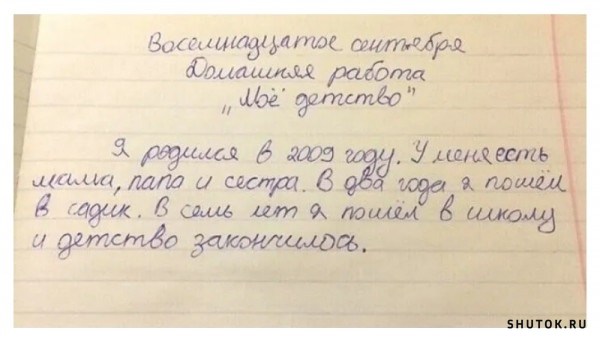 Восемнадцатое сентября
Домашняя работа
„Моё детство"
Я родился в 2009 году. У меня есть
мама, папа и сестра. В два года я пошёл
в садик. В семь лет я пошёл в школу
и детство закончилось.
SHUTOK.RU